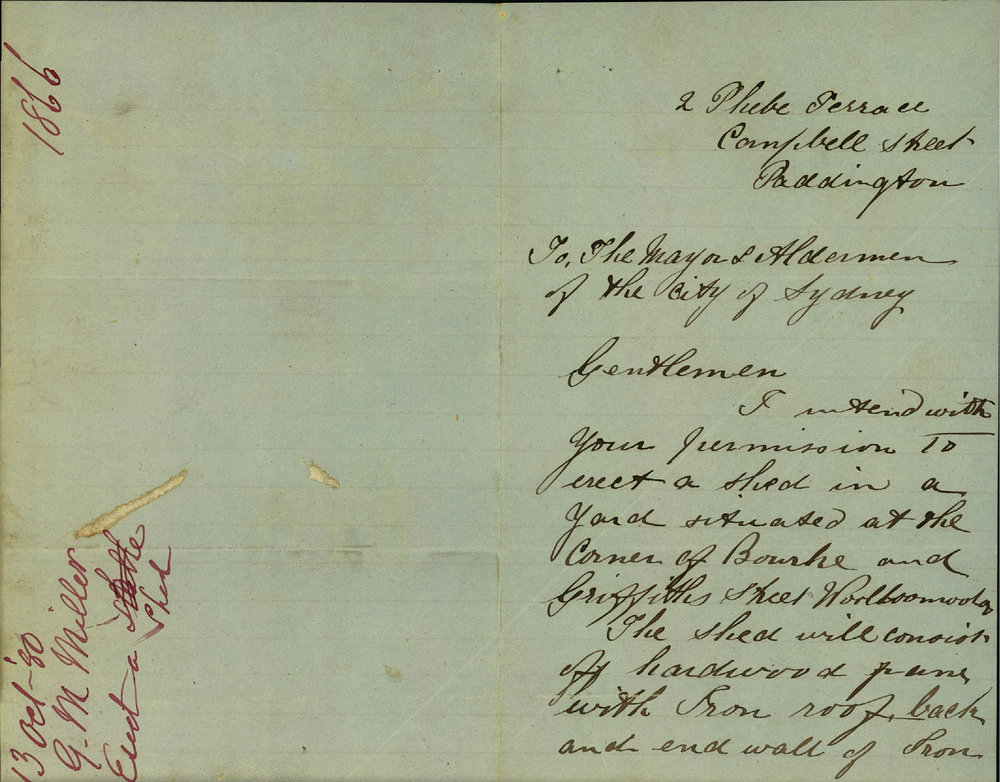 1866
13 Oct - '80
G. M Miller
Erect a
Shed
2 Phebe Terrace
Campbell Street
Paddington
To, The Mayor & Aldermen
of the City of Sydney
Gentlemen
I intend with
Your permission To
erect a shed in a
Yard situated at the
Corner of Bourke and
Griffiths Street Woolloomooloo
The shed will consist
of hardwood
with Iron roof, back
and end wall of Iron